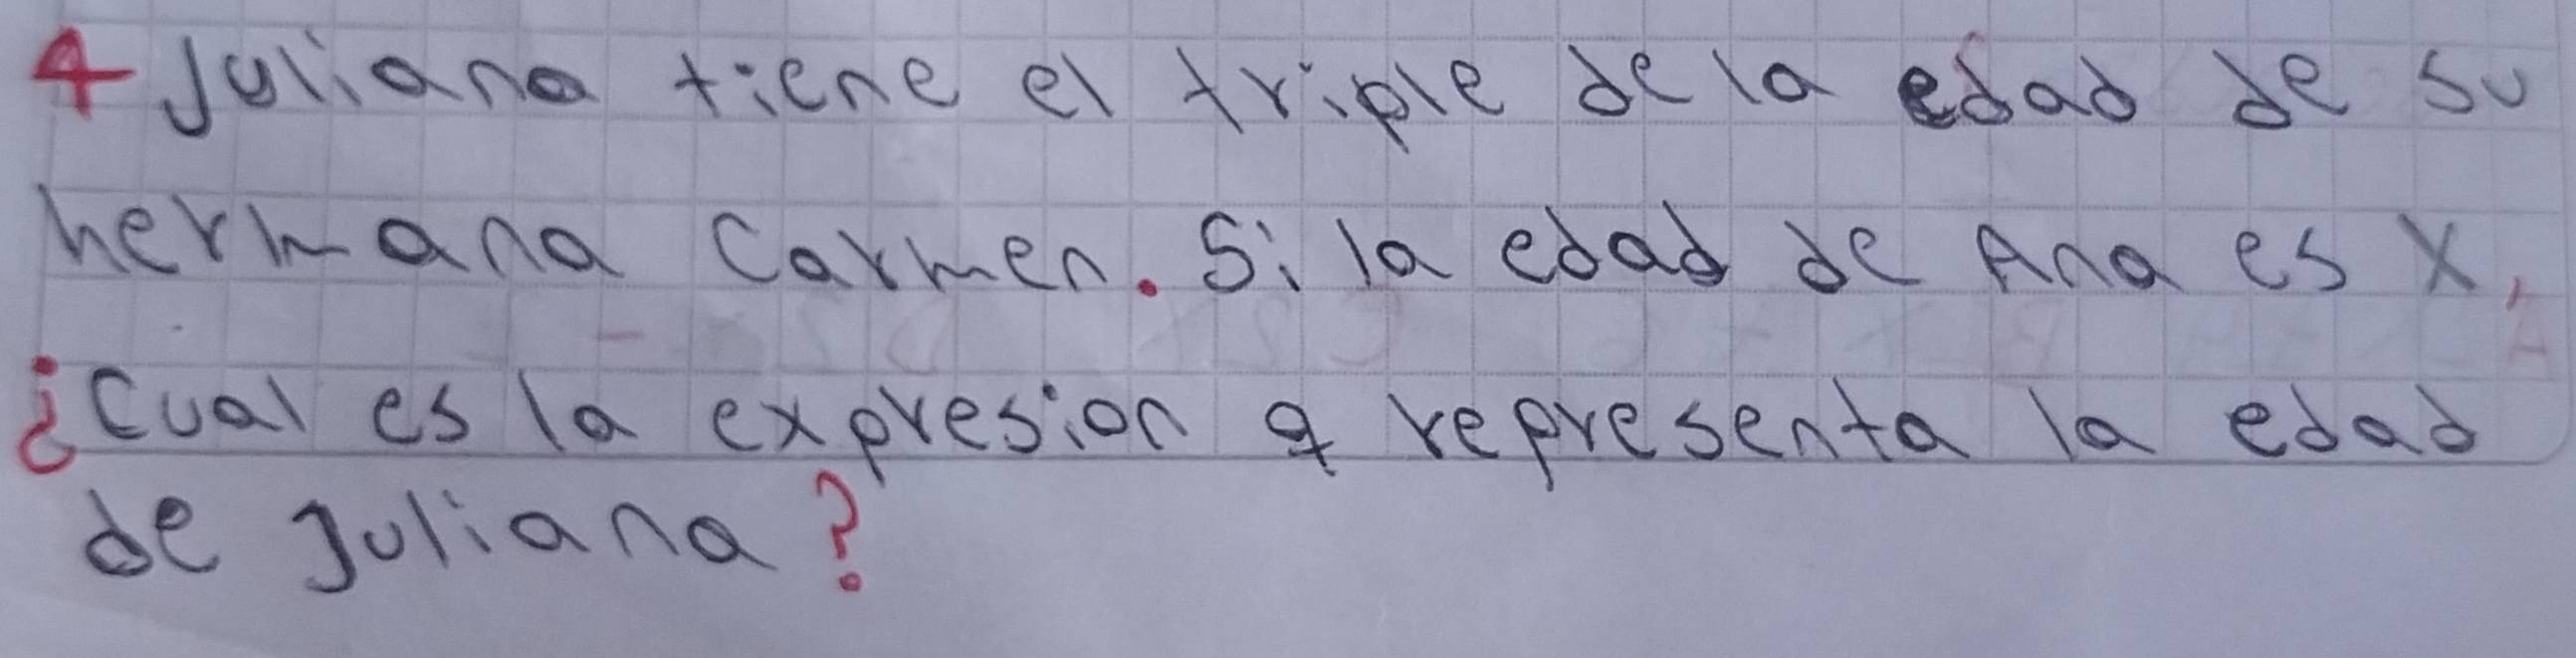 4 Juliana tiene el triple de la edad de su
hermana Carmen. Si la edad de Ana es X,
¿Cual es la expresion q representa la edad
de Juliana?